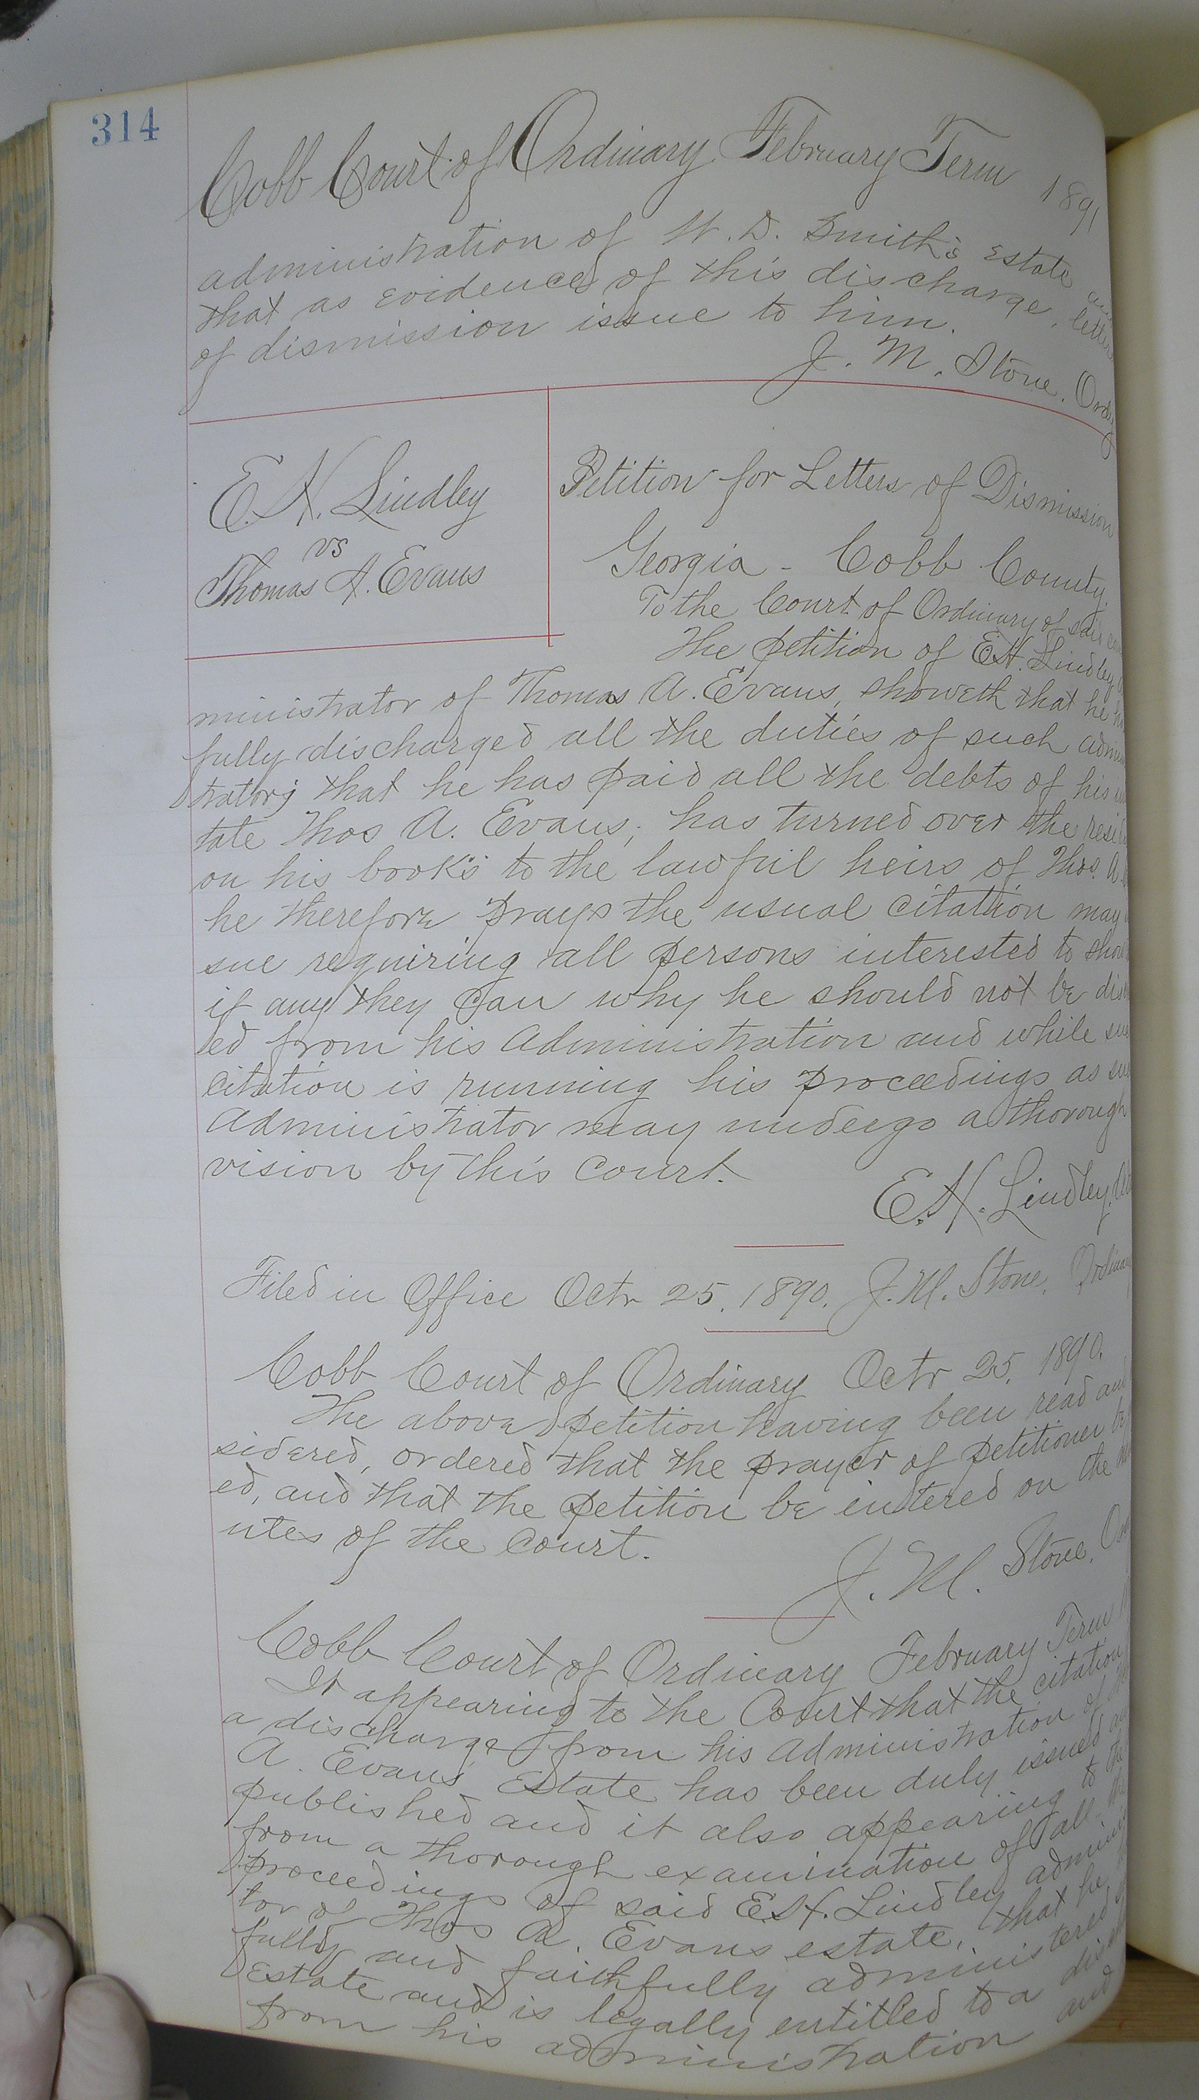 314
Cobb Court of Ordinary February Term 1891
administration of W. D. Smith's Estate
that as evidence of this discharge, letters
of dismission issue to him.
J. M. Stone, Ordy
E. H. Lindley
vs
Thomas A. Evans
Petition for Letters of Dismission
Georgia - Cobb County
To the Court of Ordinary of said
The petition of E.H. Lindley,
ministrator of Thomas A. Evans, showeth that he
fully discharged all the duties of such admin
trator; that he has paid all the debts of his
tate Thos A. Evans, has turned over the resi
on his books to the lawful heirs of Thos. A.
he therefore prays the usual citation may
sue requiring all persons interested to show
if any they can why he should not be dis
ed from his administration and while su
citation is running his proceedings as su
administrator may undergo a thorough
vision by this court.
E. H. Lindley,
Filed in Office Octr 25, 1890. J. M. Stone, Ordinary
Cobb Court of Ordinary Octr 25, 1890.
The above petition having been read and
sidered, ordered that the prayer of petitioner be
ed, and that the petition be entered on the
utes of the Court.
J. M. Stone,
Cobb Court of Ordinary February Term
It appearing to the Court that the citation
a discharge from his administration of
A. Evans' Estate has been duly issued
published and it also appearing to the
from a thorough examination of all the
proceedings of said E.H. Lindley adminis
tor of Thos A. Evans estate, that he
fully and faithfully administered
Estate and is legally entitled to a dis
from his administration and